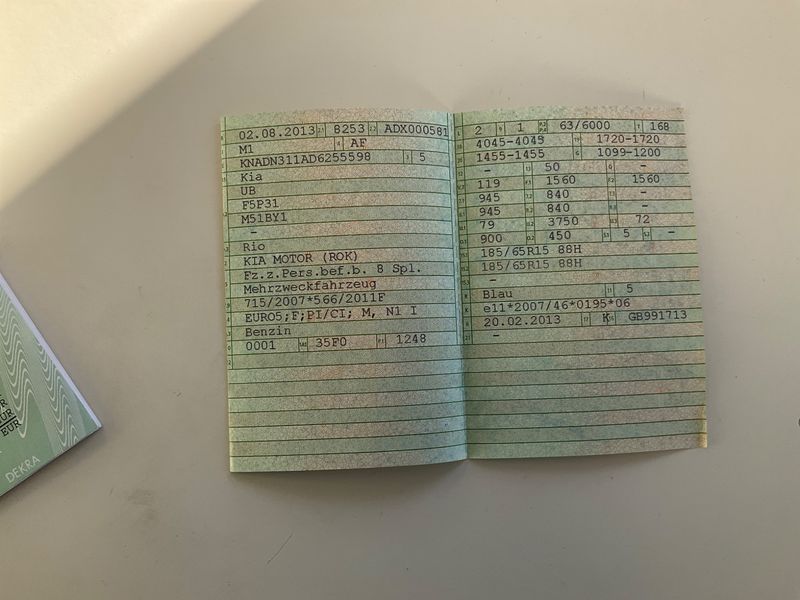 02.08.2013 8253 ADX000581
M1 AF
KNADN311AD6255598 5
Kia
UB
F5P31
M51BY1
-
Rio
KIA MOTOR (ROK)
Fz.z.Pers.bef.b. 8 Spl.
Mehrzweckfahrzeug
715/2007*566/2011F
EURO5;F;PI/CI; M, N1 I
Benzin
0001 35F0 1248
2 1 63/6000 168
4045-4045 1720-1720
1455-1455 1099-1200
- 50 -
119 1560 1560
945 840 -
945 840 -
79 3750 72
900 450 5 -
185/65R15 88H
185/65R15 88H
-
Blau 5
e11*2007/46*0195*06
20.02.2013 K GB991713
-
EUR
EUR
DEKRA